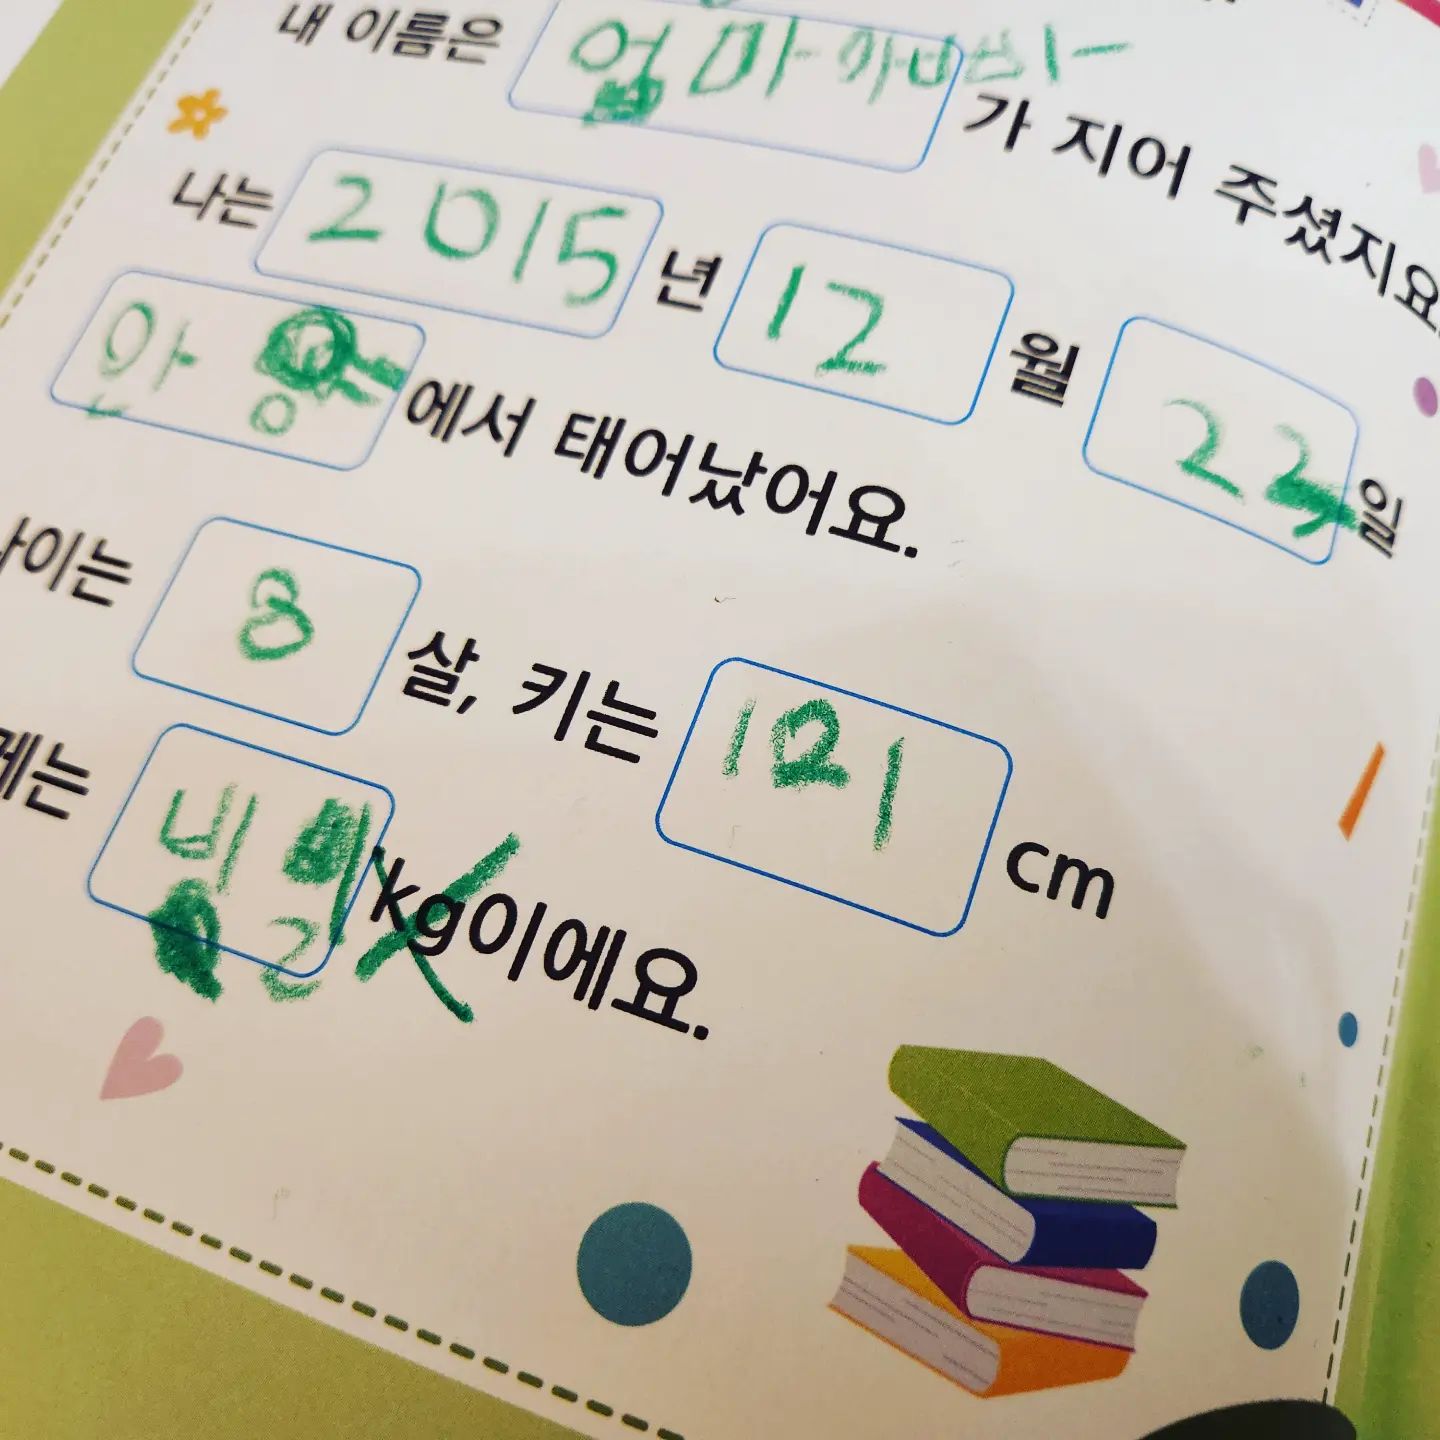 내 이름은 엄마 아빠 가 지어 주셨지요.
나는 2015 년 12 월 23 일
안양 에서 태어났어요.
나이는 8 살, 키는 121 cm
게는 비밀 kg이에요.